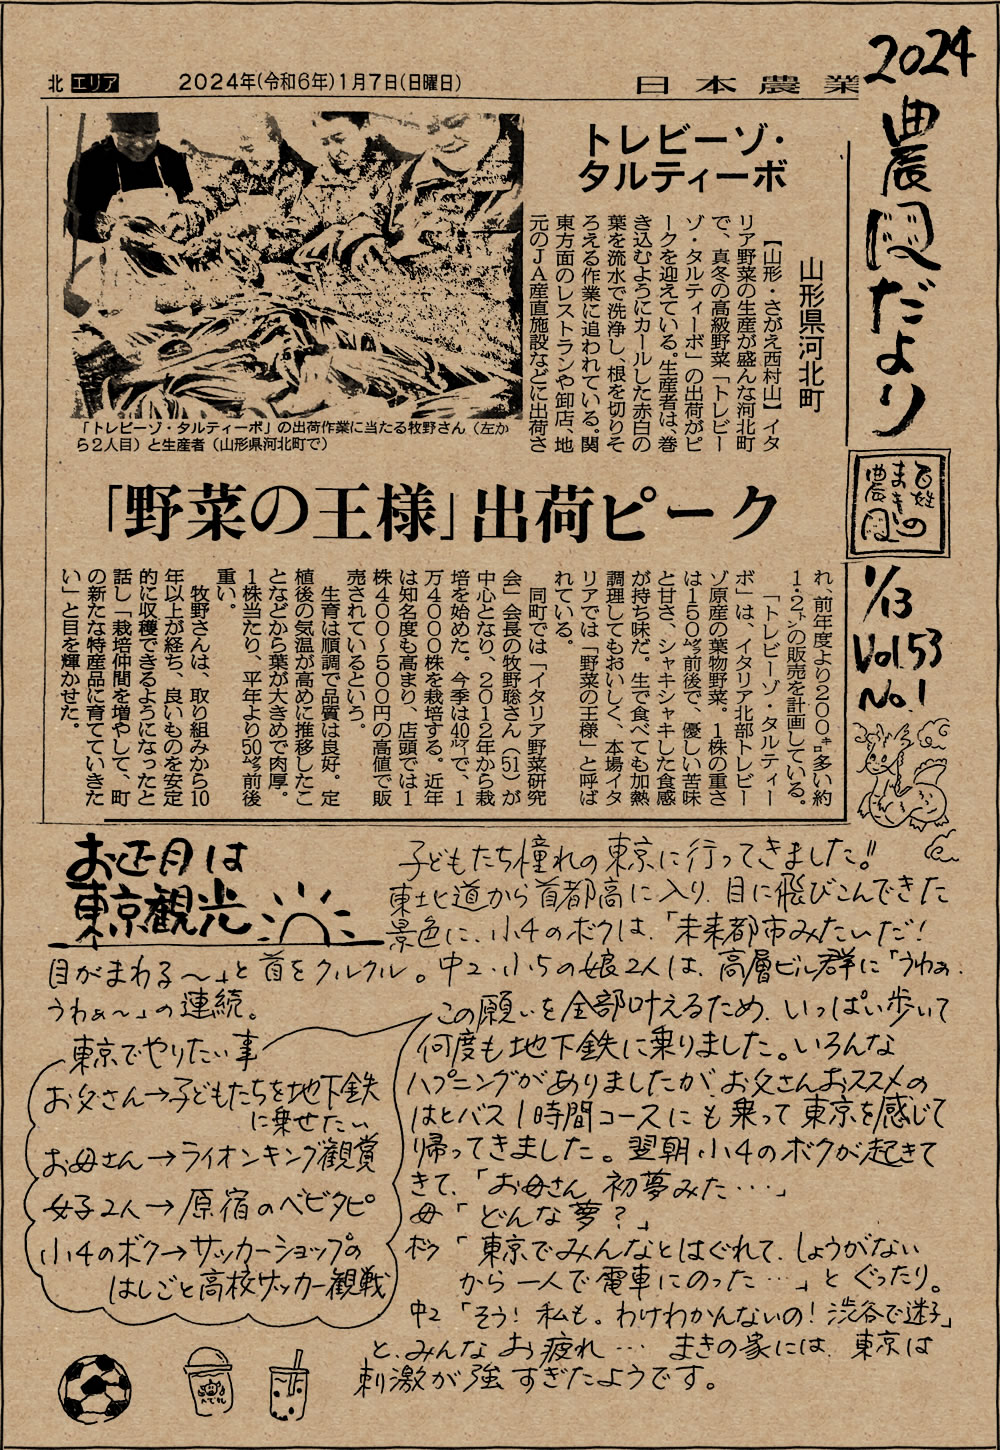 北 エリア 2024年(令和6年)1月7日(日曜日) 日本農業
2024
農園だより
百姓
まきの
農園
1/13
Vol.53
No.1
トレビーゾ・
タルティーボ
山形県河北町
【山形・さがえ西村山】イタ
リア野菜の生産が盛んな河北町
で、真冬の高級野菜「トレビー
ゾ・タルティーボ」の出荷がピ
ークを迎えている。生産者は、巻
き込むようにカールした赤白の
葉を流水で洗浄し、根を切りそ
ろえる作業に追われている。関
東方面のレストランや卸店、地
元のＪＡ産直施設などに出荷さ
「トレビーゾ・タルティーボ」の出荷作業に当たる牧野さん（左か
ら2人目）と生産者（山形県河北町で）
「野菜の王様」出荷ピーク
れ、前年度より200㌔多い約
1・2㌧の販売を計画している。
「トレビーゾ・タルティー
ボ」は、イタリア北部トレビー
ゾ原産の葉物野菜。1株の重さ
は150㌘前後で、優しい苦味
と甘さ、シャキシャキした食感
が持ち味だ。生で食べても加熱
調理してもおいしく、本場イタ
リアでは「野菜の王様」と呼ば
れている。
同町では「イタリア野菜研究
会」会長の牧野聡さん（51）が
中心となり、2012年から栽
培を始めた。今季は40㌃で、1
万4000株を栽培する。近年
は知名度も高まり、店頭では1
株400～500円の高値で販
売されているという。
生育は順調で品質は良好。定
植後の気温が高めに推移したこ
となどから葉が大きめで肉厚。
1株当たり、平年より50㌘前後
重い。
牧野さんは、取り組みから10
年以上が経ち、良いものを安定
的に収穫できるようになったと
話し「栽培仲間を増やして、町
の新たな特産品に育てていきた
い」と目を輝かせた。
お正月は
東京観光
子どもたち憧れの東京に行ってきました!!
東北道から首都高に入り、目に飛びこんできた
景色に、小4のボクは、「未来都市みたいだ！
目がまわる～」と首をクルクル。中2・小5の娘2人は、高層ビル群に「うわぁ、
うわぁ～」の連続。
東京でやりたい事
お父さん→子どもたちを地下鉄
に乗せたい
お母さん→ライオンキング観賞
女子2人→原宿のベビタピ
小4のボク→サッカーショップの
はしごと高校サッカー観戦
この願いを全部叶えるため、いっぱい歩いて
何度も地下鉄に乗りました。いろんな
ハプニングがありましたが、お父さんおススメの
はとバス1時間コースにも乗って東京を感じて
帰ってきました。翌朝、小4のボクが起きて
きて、「お母さん、初夢みた・・・」
母「どんな夢？」
ボク「東京でみんなとはぐれて、しょうがない
から一人で電車にのった…」とぐったり。
中2「そう！私も。わけわかんないの！渋谷で迷子」
と、みんなお疲れ… まきの家には、東京は
刺激が強すぎたようです。